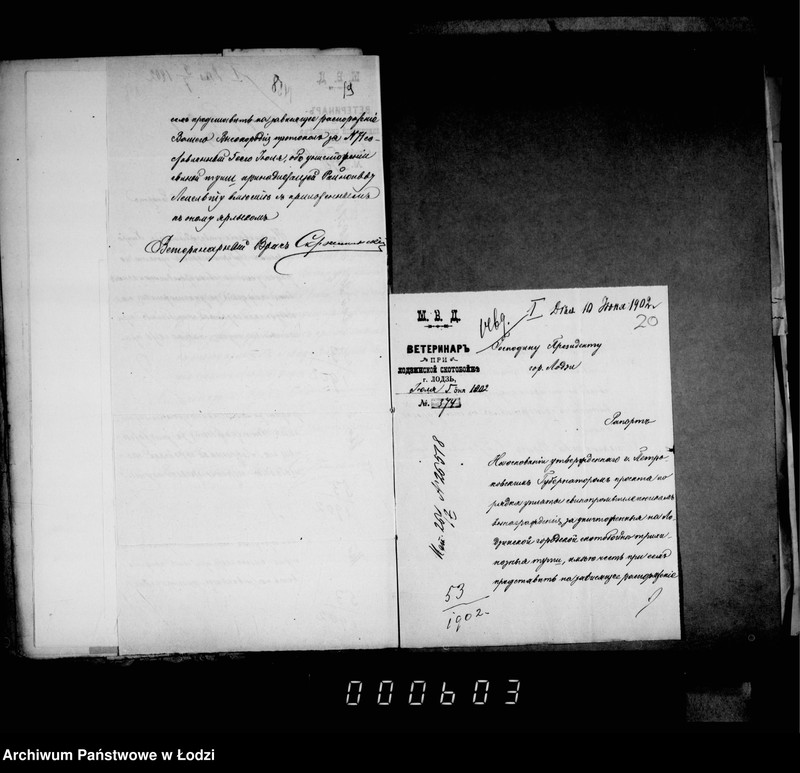 83
19
семъ представить на зависящее распоряженіе
Вашего Высокородія протоколъ за №71 со-
ставленный 5 сего Іюля, объ уничтоженіи
свиной туши принадлежащей
вмѣстѣ съ приложеннымъ
къ оному ярлыкомъ
Ветеринарный Врачъ
М. В. Д.
ВЕТЕРИНАРЪ
ПРИ
ЛОДЗИНСКОЙ СКОТОБОЙНѢ
г. ЛОДЗЬ,
Іюля 5 дня 1902
№. 174
I Дня 10 Іюля 1902 г
20
Господину Президенту
гор. Лодзи
Рапортъ
На основаніи утвержденнаго г. Петро-
ковскимъ Губернаторомъ проекта по
рядка уплаты свинопромышленникамъ
вознагражденія за уничтоженныя на Ло-
дзинской городской скотобойнѣ трихи
нозныя туши, имѣю честь при семъ
представить на зависящее распоряженіе
53
1902
000603
Archiwum Państwowe w Łodzi